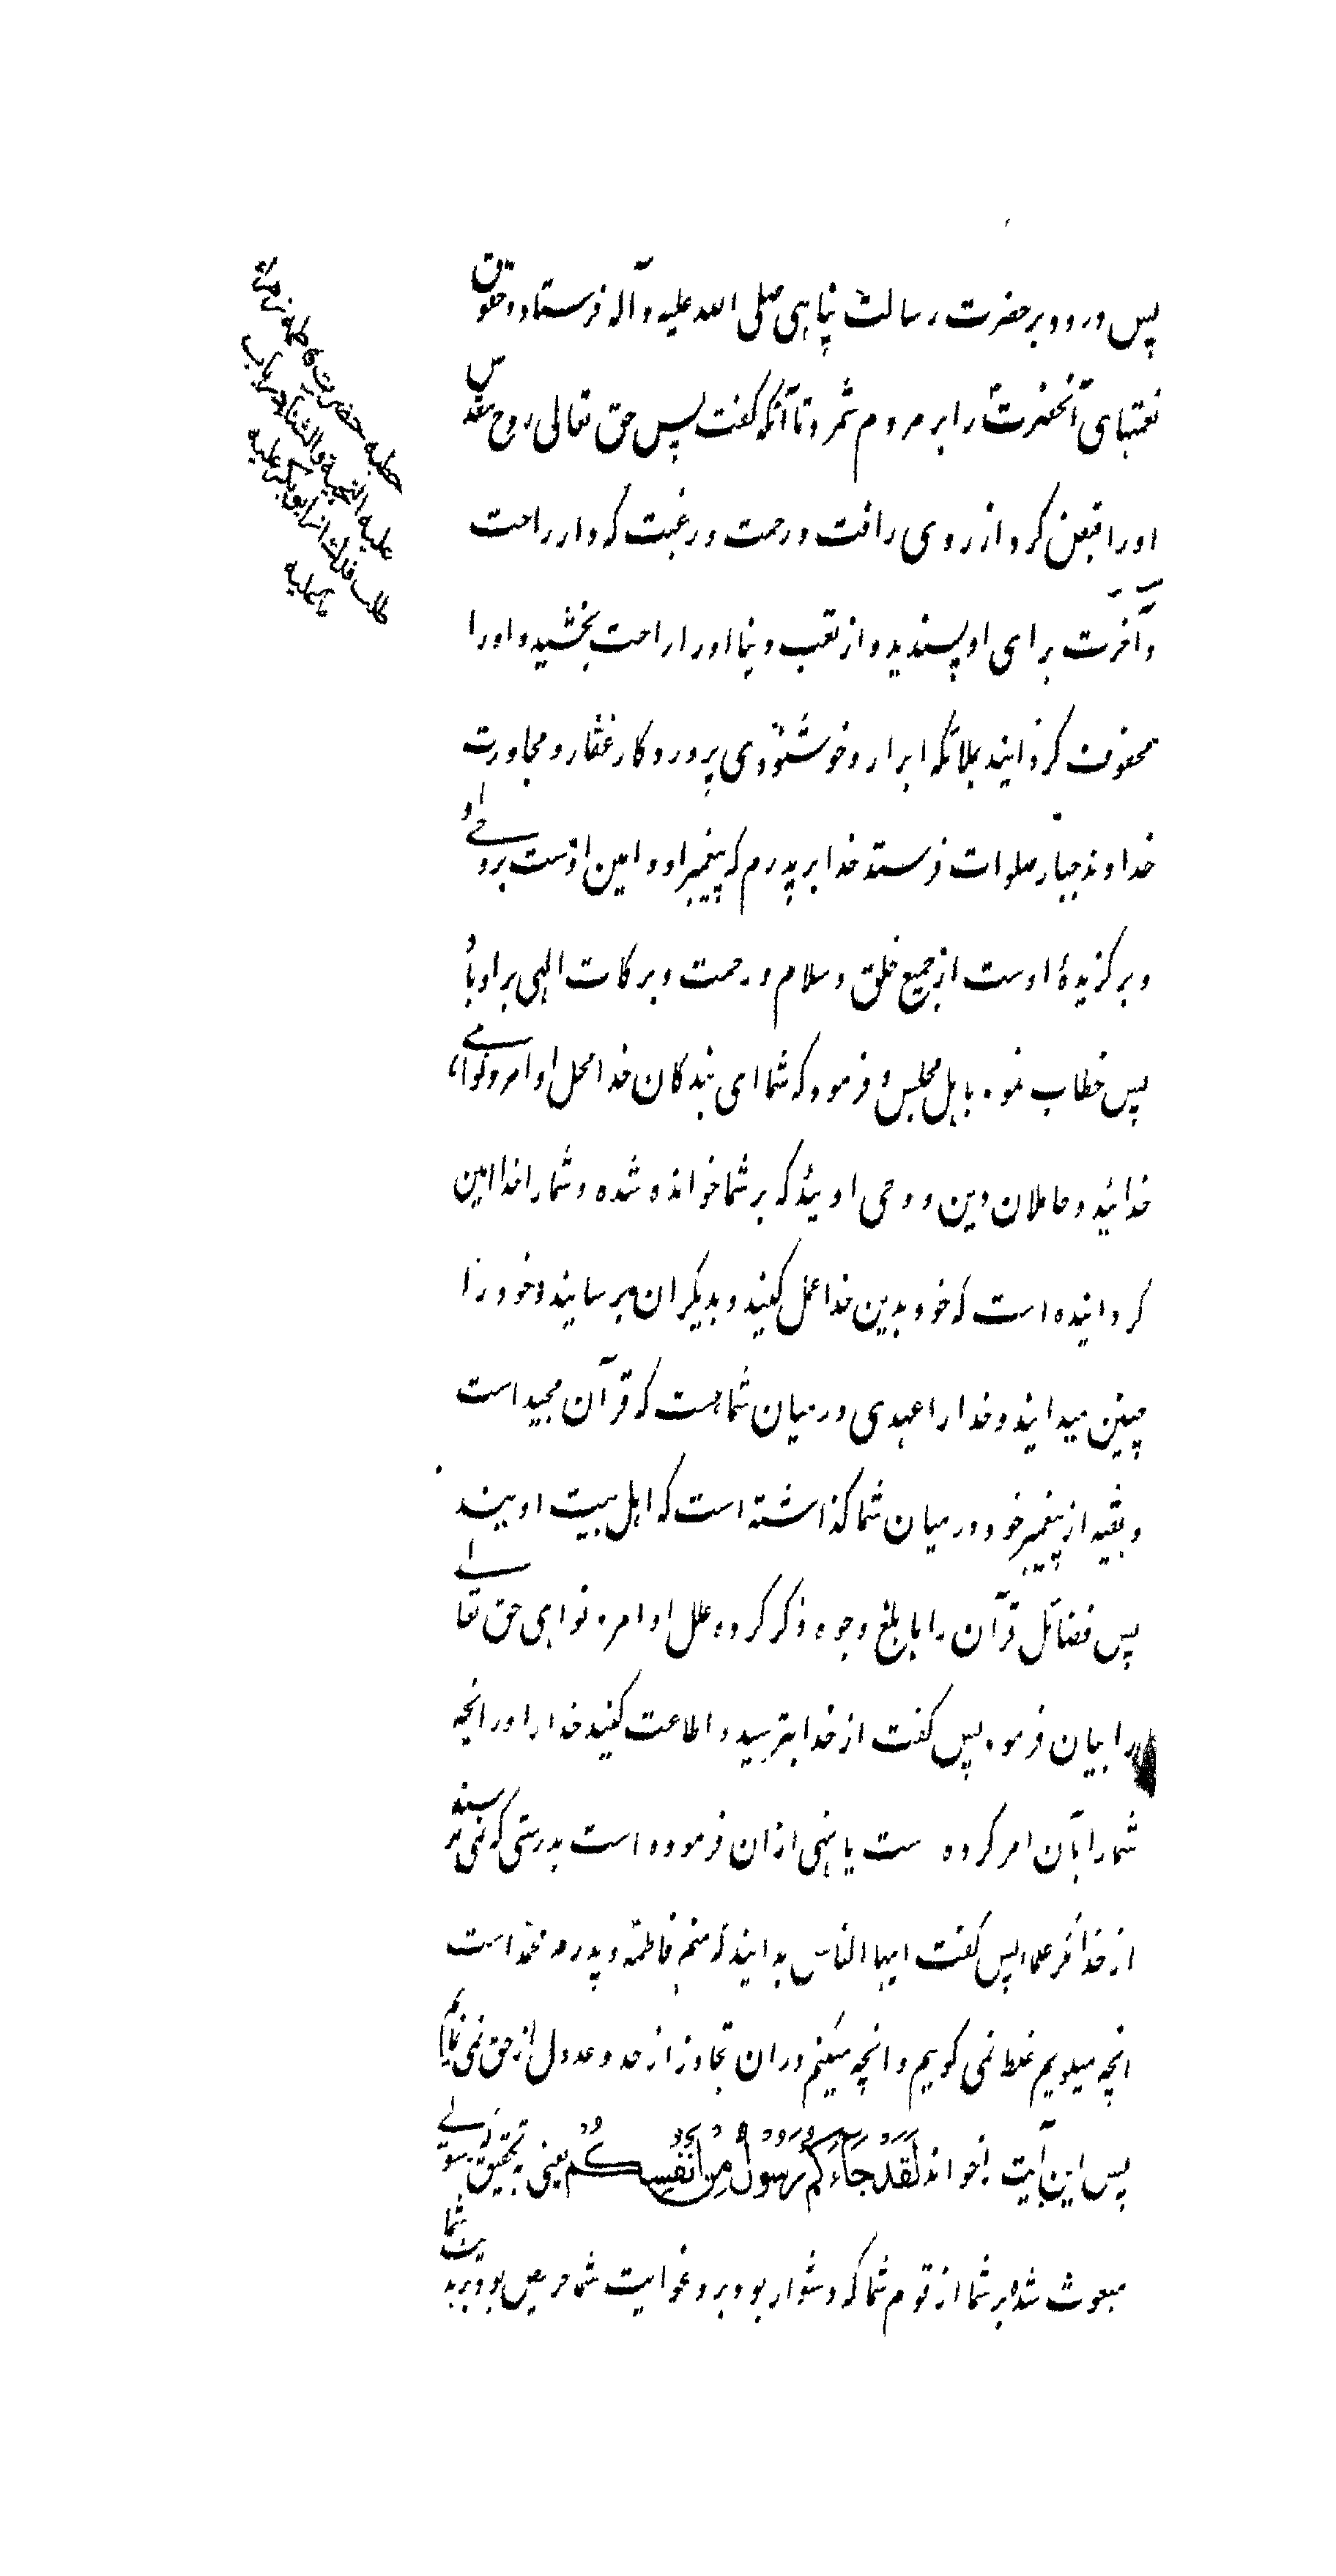 پس درود بر حضرت رسالت پناهی صلی الله علیه و آله فرستاد و حقوق
نعمتهای آنحضرت را بر مردم شمرد تا آنکه گفت پس حق تعالی روح مقدس
او را قبض کرد از روی رافت و رحمت و رغبت که دار راحت
و آخرت برای او پسندید و از تعب دنیا او را راحت بخشید و او را
محفوف گردانید بملائکه ابرار و خوشنودی پروردگار غفار و مجاورت
خداوند جبار صلوات فرستد خدا بر پدرم که پیغمبر او و امین اوست بر وحی او
و برگزیدهٔ اوست از جمیع خلق و سلام و رحمت و برکات الهی بر او باد
پس خطاب نمود باهل مجلس و فرمود که شما ای بندگان خدا محل اوامر و نواهی
خدائید و حاملان دین و وحی اوئید که بر شما خوانده شده و شما را خدا امین
گردانیده است که خود بدین خدا عمل کنید و بدیگران برسانید و خود را
چنین میدانید و خدا را عهدی در میان شما هست که قرآن مجید است
و بقیه از پیغمبر خود در میان شما گذاشته است که اهل بیت اویند
پس فضائل قرآن را بابلغ وجوه ذکر کرده و علل اوامر و نواهی حق تعالی
را بیان فرمود پس گفت از خدا بترسید و اطاعت کنید خدا را در آنچه
شما را بآن امر کرده ست یا نهی از ان فرموده است بدرستی که نمی ترسند
از خدا مگر علما پس گفت ایها الناس بدانید که منم فاطمه و پدرم محمد است
انچه میگویم غلط نمی گویم و انچه میکنم در ان تجاوز از حد و عدول از حق نمی نمایم
پس این آیت را خواند لَقَدْ جَاءَكُمْ رَسُولٌ مِنْ أَنْفُسِكُمْ یعنی بتحقیق رسولی
مبعوث شد بر شما از قوم شما که دشوار بود بر او غوایت شما حریص بود بر هدایت شما
خطبه حضرت فاطمه زهرا
علیه التحیة والثناء در باب
طلب فدک از ابوبکر علیه
ما علیه